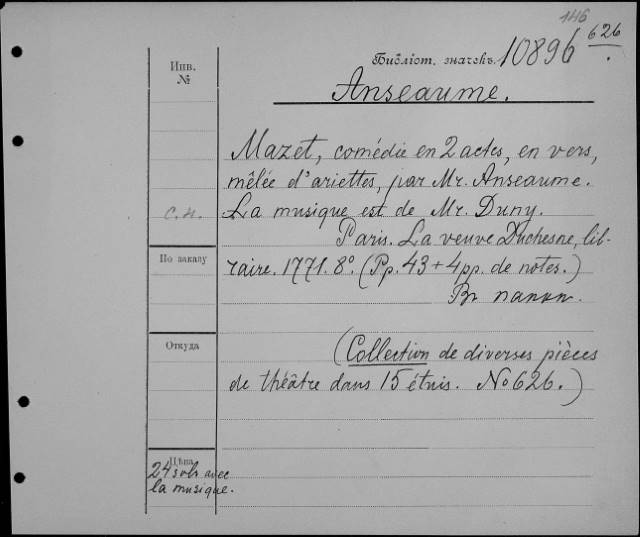 146
Инв.
№
Библіот. значекъ. 10896 626.
Anseaume.
Mazet, comédie en 2 actes, en vers,
mêlée d'ariettes, par Mr. Anseaume.
с.н. La musique est de Mr. Duny.
Paris. La veuve Duchesne, lib-
По заказу raire. 1771. 8º. (Pp. 43 + 4 pp. de notes.)
Въ папкѣ.
Откуда (Collection de diverses pièces
de théâtre dans 15 étuis. No 626.)
Цѣна
24 sols avec
la musique.